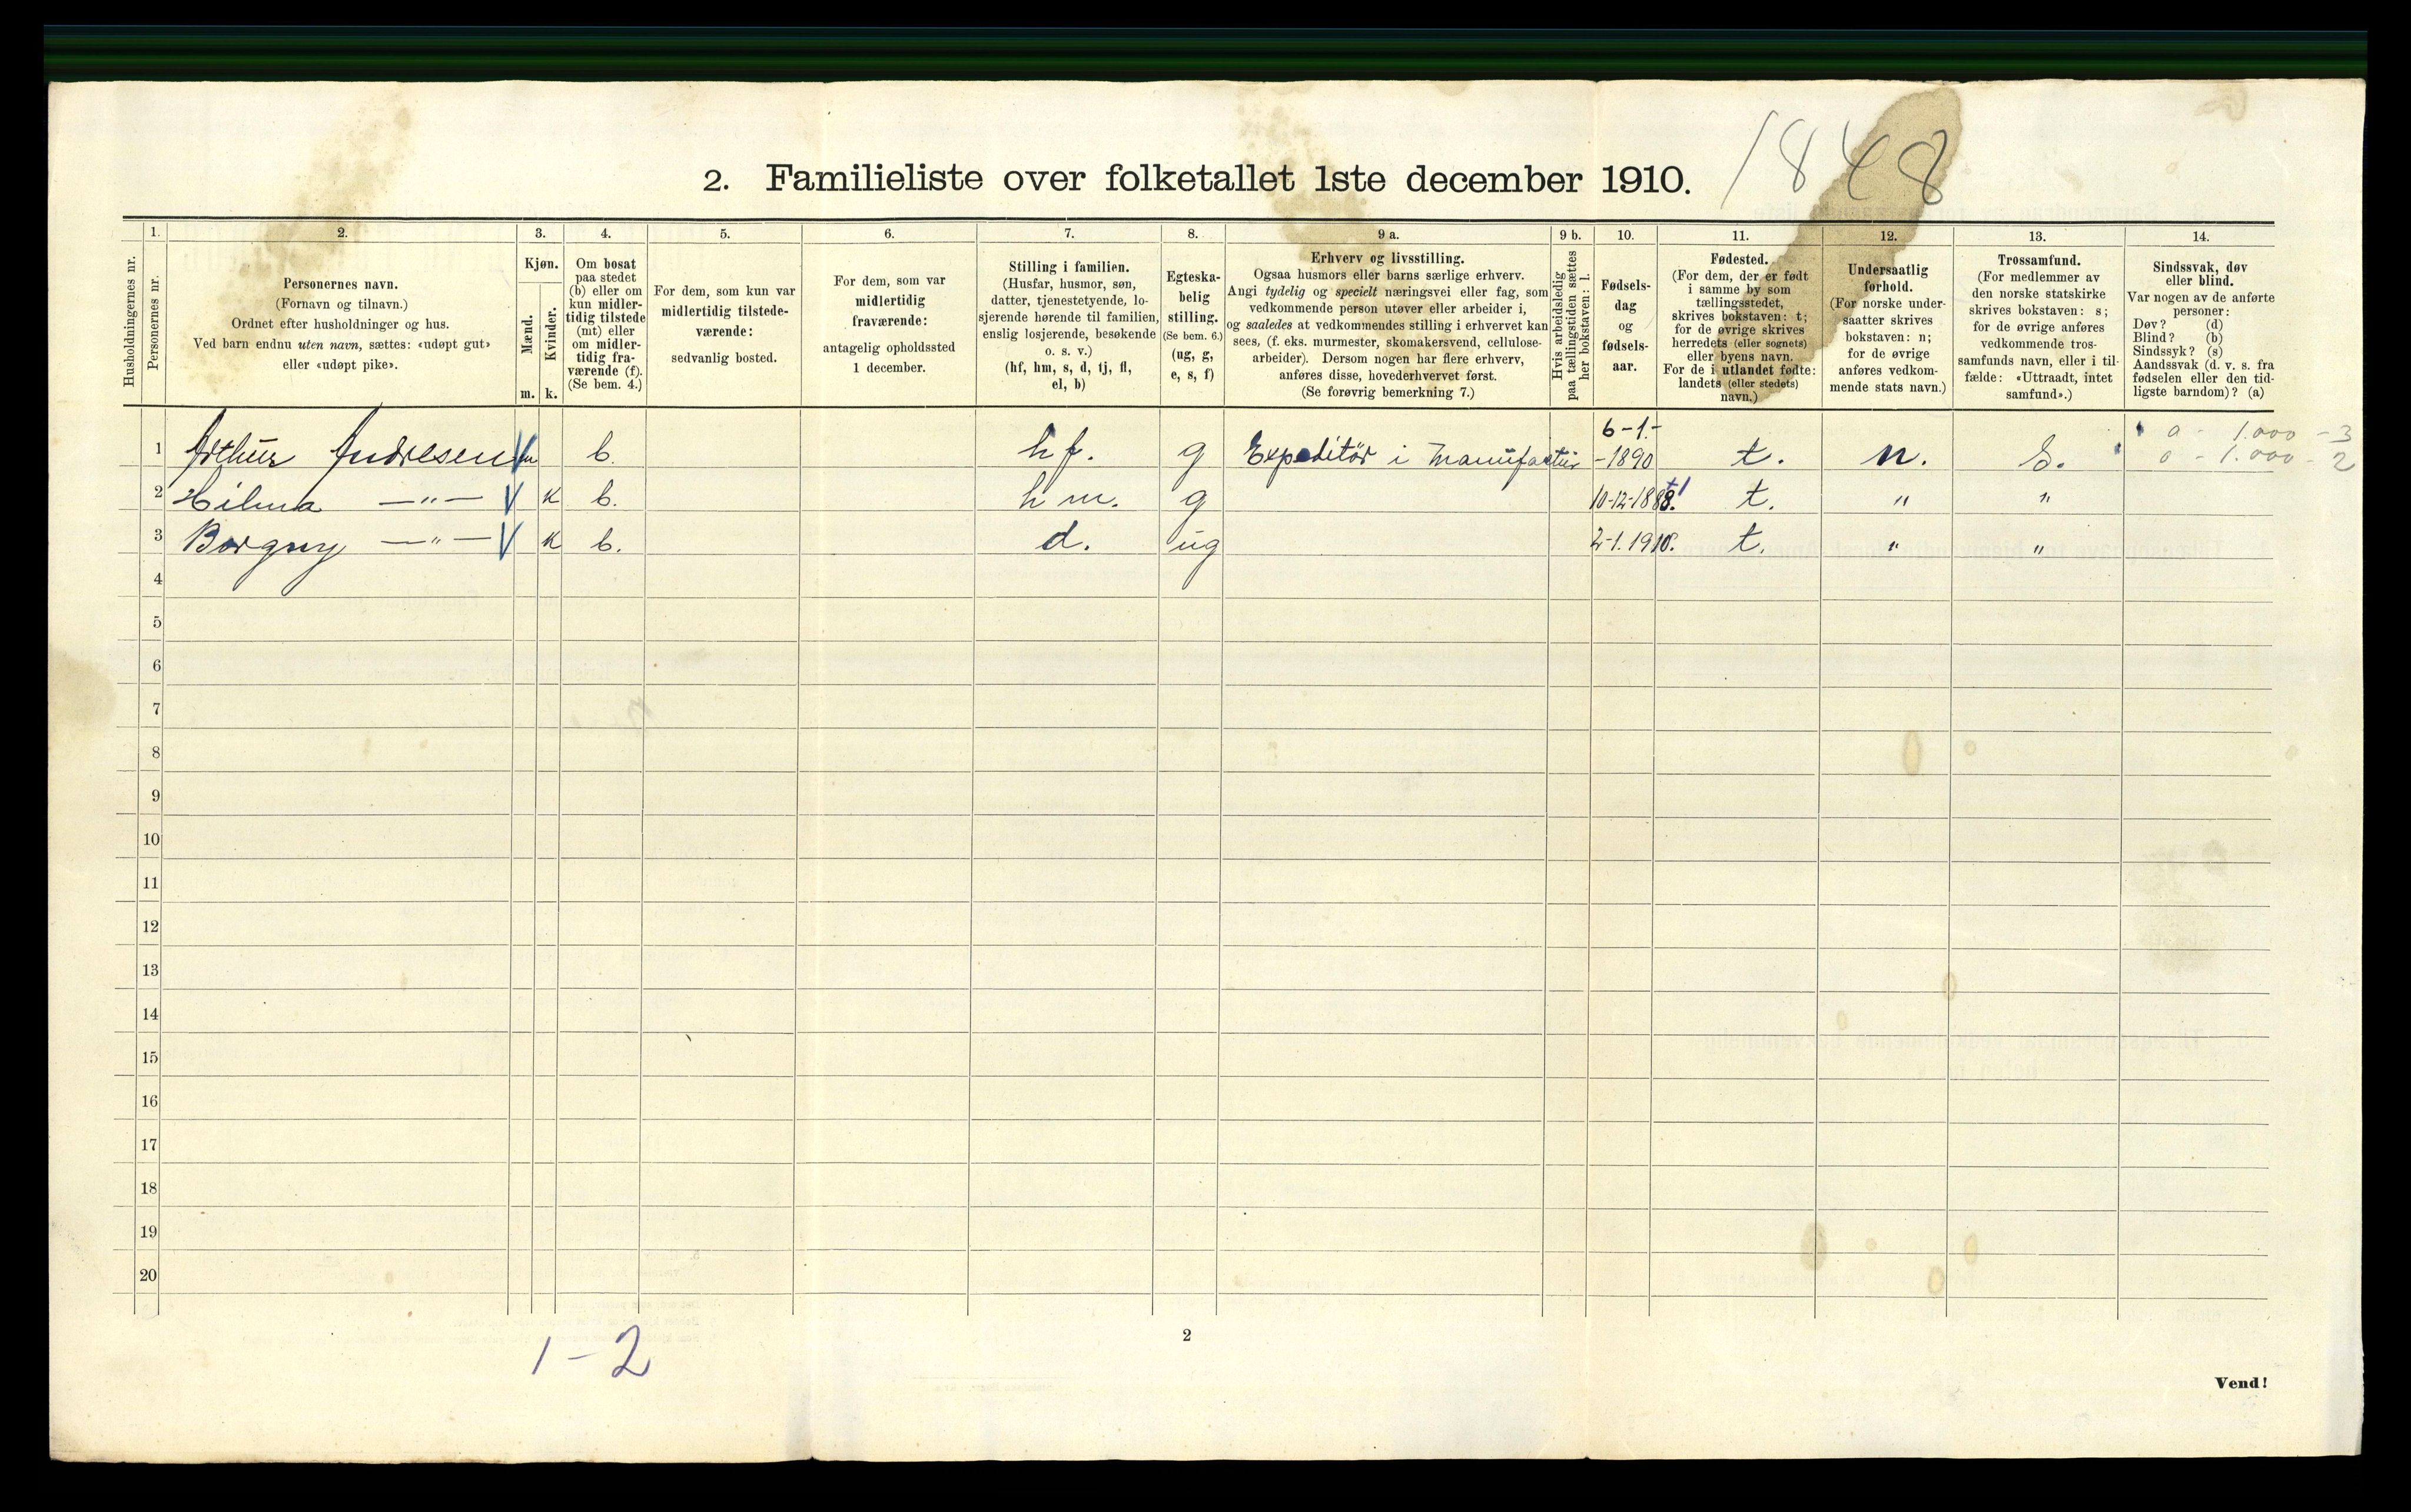 2. Familieliste over folketallet 1ste december 1910.
1848
Husholdningernes nr.
1.
Personernes nr.
2.
Personernes navn.
(Fornavn og tilnavn.)
Ordnet efter husholdninger og hus.
Ved barn endnu uten navn, sættes: «udøpt gut»
eller «udøpt pike».
3.
Kjøn.
Mænd.
Kvinder.
m.
k.
4.
Om bosat
paa stedet
(b) eller om
kun midler-
tidig tilstede
(mt) eller
om midler-
tidig fra-
værende (f).
(Se bem. 4.)
5.
For dem, som kun var
midlertidig tilstede-
værende:
sedvanlig bosted.
6.
For dem, som var
midlertidig
fraværende:
antagelig opholdssted
1 december.
7.
Stilling i familien.
(Husfar, husmor, søn,
datter, tjenestetyende, lo-
sjerende hørende til familien,
enslig losjerende, besøkende
o. s. v.)
(hf, hm, s, d, tj, fl,
el, b)
8.
Egteska-
belig
stilling.
(Se bem. 6.)
(ug, g,
e, s, f)
9 a.
Erhverv og livsstilling.
Ogsaa husmors eller barns særlige erhverv.
Angi tydelig og specielt næringsvei eller fag, som
vedkommende person utøver eller arbeider i,
og saaledes at vedkommendes stilling i erhvervet kan
sees, (f. eks. murmester, skomakersvend, cellulose-
arbeider). Dersom nogen har flere erhverv,
anføres disse, hovederhvervet først.
(Se forøvrig bemerkning 7.)
9 b.
Hvis arbeidsledig
paa tællingstiden sættes
her bokstaven: l.
10.
Fødsels-
dag
og
fødsels-
aar.
11.
Fødested.
(For dem, der er født
i samme by som
tællingsstedet,
skrives bokstaven: t;
for de øvrige skrives
herredets (eller sognets)
eller byens navn.
For de i utlandet fødte:
landets (eller stedets)
navn.)
12.
Undersaatlig
forhold.
(For norske under-
saatter skrives
bokstaven: n;
for de øvrige
anføres vedkom-
mende stats navn.)
13.
Trossamfund.
(For medlemmer av
den norske statskirke
skrives bokstaven: s;
for de øvrige anføres
vedkommende tros-
samfunds navn, eller i til-
fælde: «Uttraadt, intet
samfund».)
14.
Sindssvak, døv
eller blind.
Var nogen av de anførte
personer:
Døv? (d)
Blind? (b)
Sindssyk? (s)
Aandssvak (d. v. s. fra
fødselen eller den tid-
ligste barndom)? (a)
1 Arthur Andresen m b. hf. g Expeditör i Manufaktur 6-1.-
-1890 t. n. S. a - 1.000 - 3
o - 1.000 - 2
2 Hilma —"— k b. hm. g 10-12-1888. t. " "
3 Borgny —"— k b. d. ug 2-1.1910. t. " "
4
5
6
7
8
9
10
11
12
13
14
15
16
17
18
19
20
1-2
2
Vend!